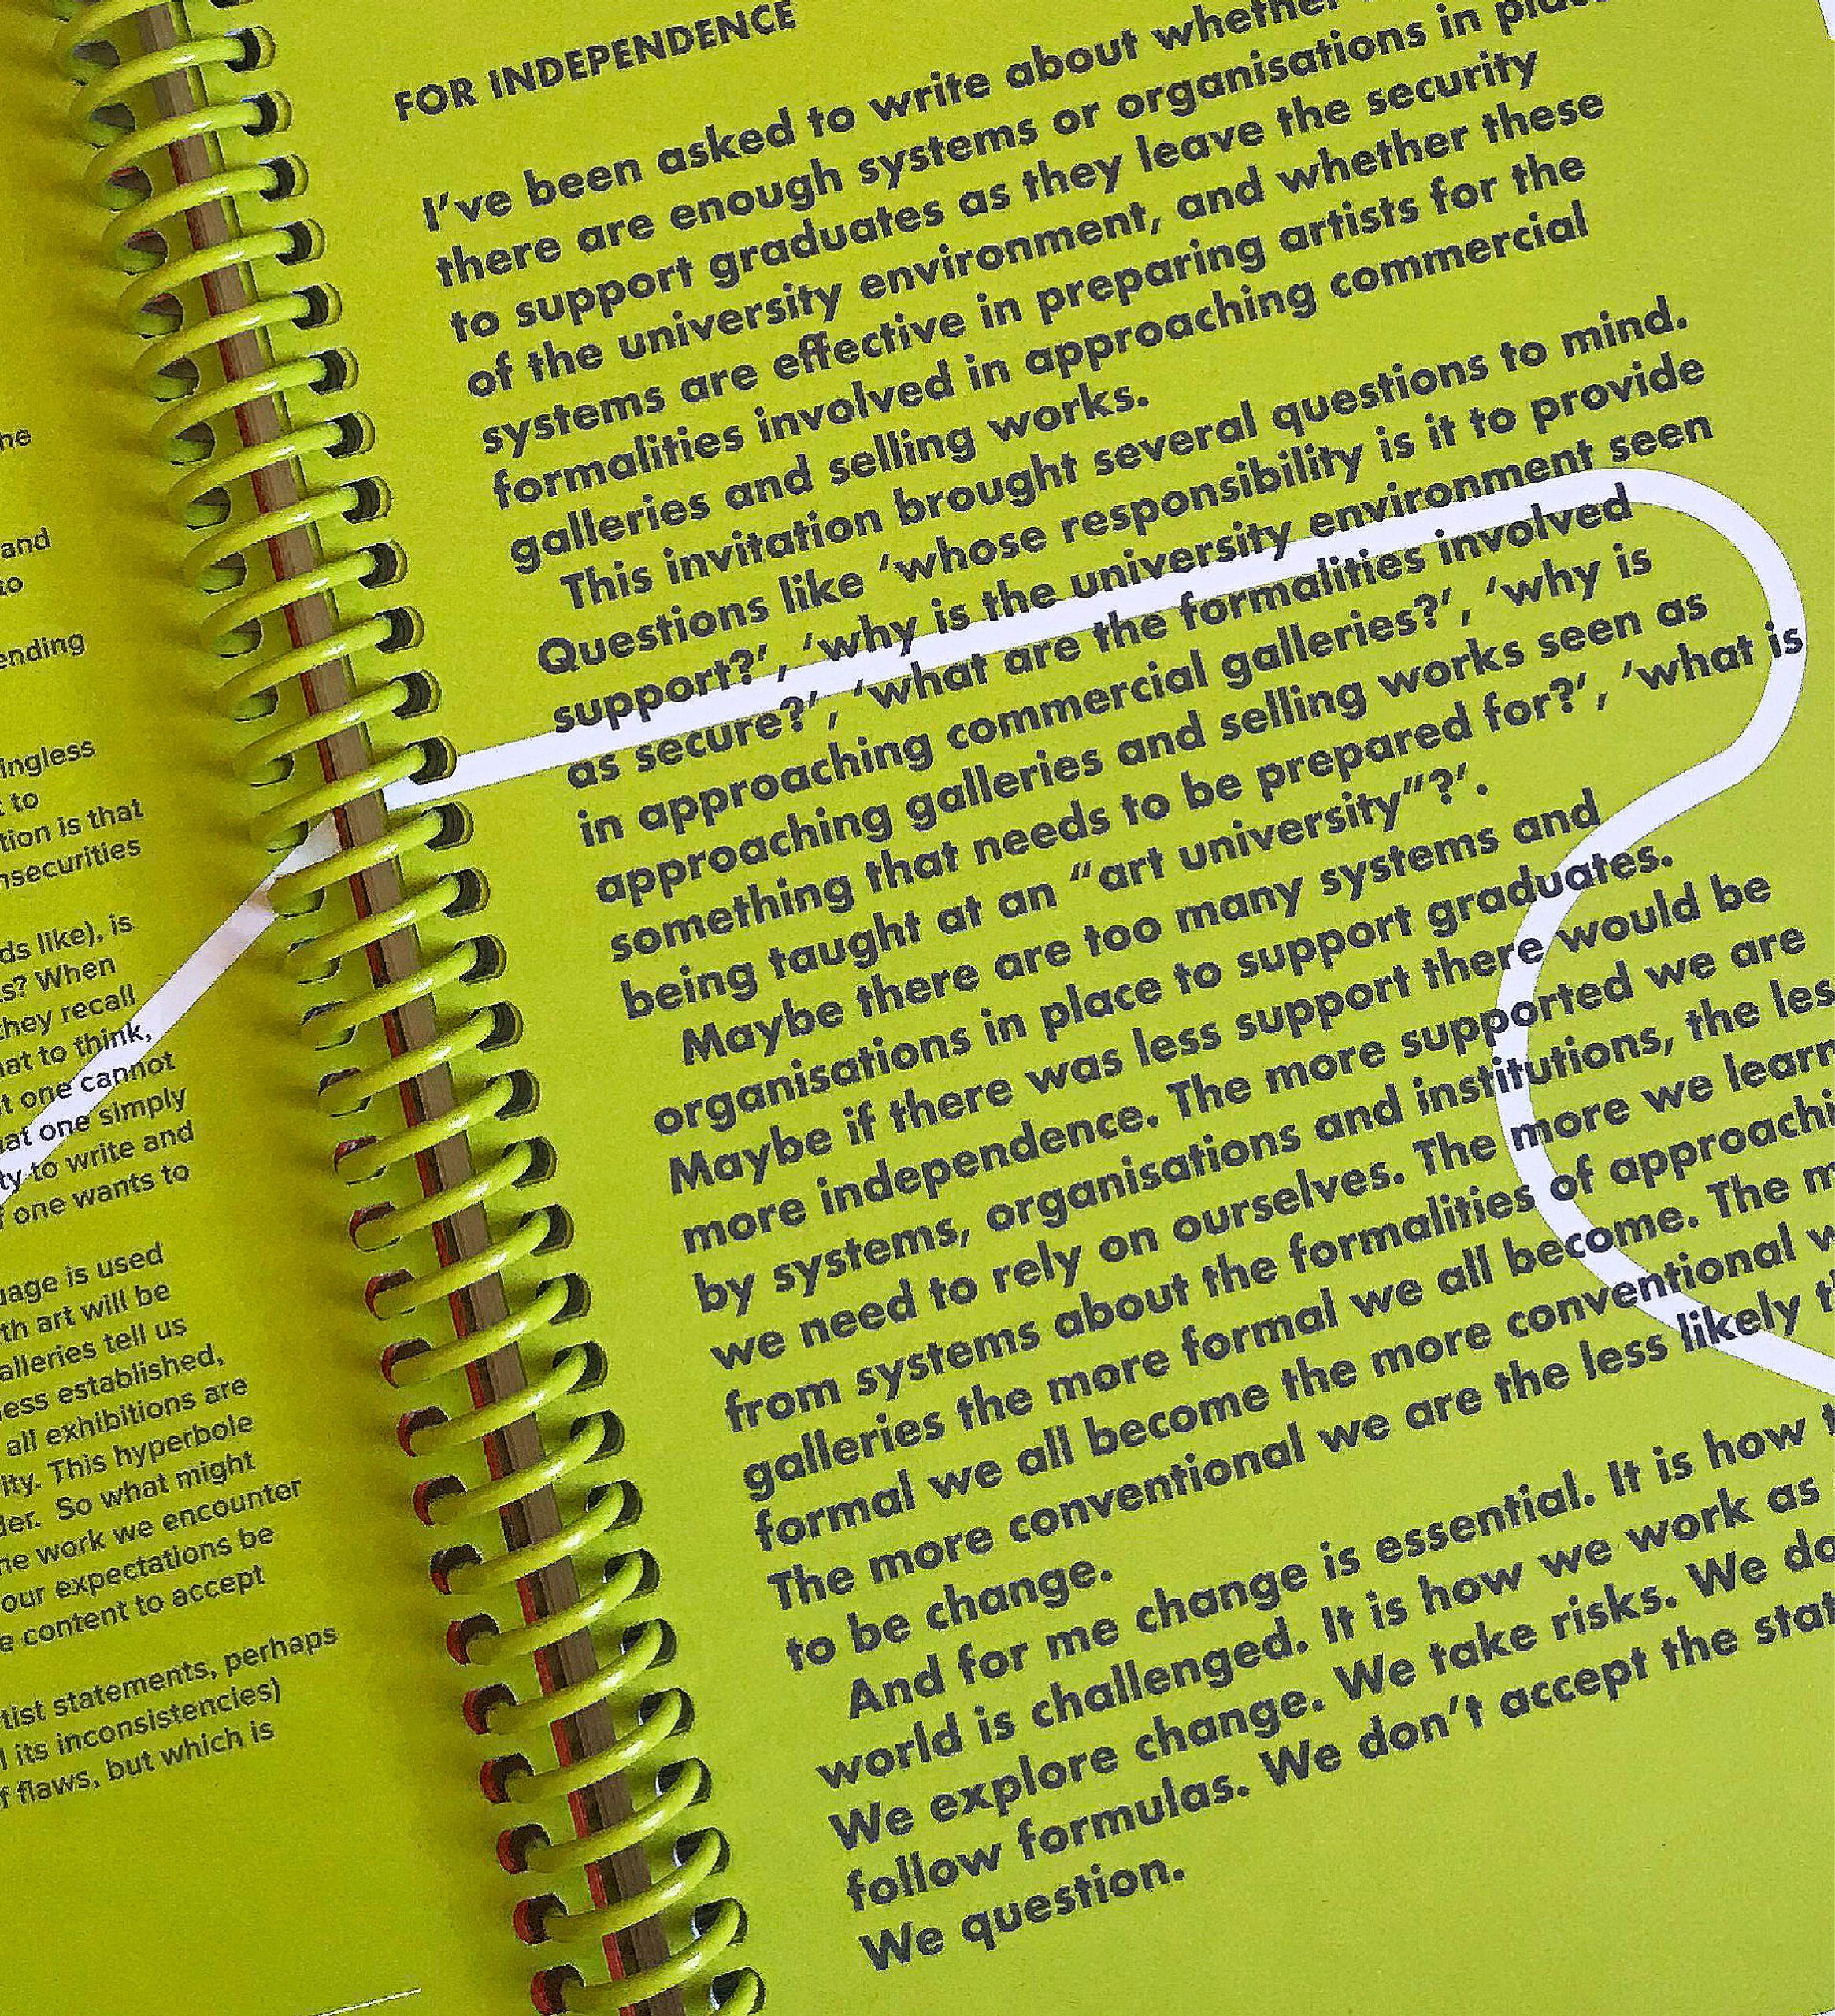 he
and
to
ending
ingless
to
tion is that
nsecurities
ds like), is
s? When
they recall
hat to think,
t one cannot
hat one simply
ty to write and
f one wants to
uage is used
th art will be
alleries tell us
less established,
all exhibitions are
ity. This hyperbole
der. So what might
he work we encounter
our expectations be
e content to accept
tist statements, perhaps
l its inconsistencies)
f flaws, but which is
FOR INDEPENDENCE
I've been asked to write about whether
there are enough systems or organisations in place
to support graduates as they leave the security
of the university environment, and whether these
systems are effective in preparing artists for the
formalities involved in approaching commercial
galleries and selling works.
This invitation brought several questions to mind.
Questions like 'whose responsibility is it to provide
support?', 'why is the university environment seen
as secure?', 'what are the formalities involved
in approaching commercial galleries?', 'why is
approaching galleries and selling works seen as
something that needs to be prepared for?', 'what is
being taught at an "art university"?'.
Maybe there are too many systems and
organisations in place to support graduates.
Maybe if there was less support there would be
more independence. The more supported we are
by systems, organisations and institutions, the les
we need to rely on ourselves. The more we learn
from systems about the formalities of approachi
galleries the more formal we all become. The m
formal we all become the more conventional w
The more conventional we are the less likely t
to be change.
And for me change is essential. It is how t
world is challenged. It is how we work as
We explore change. We take risks. We do
follow formulas. We don't accept the stat
We question.